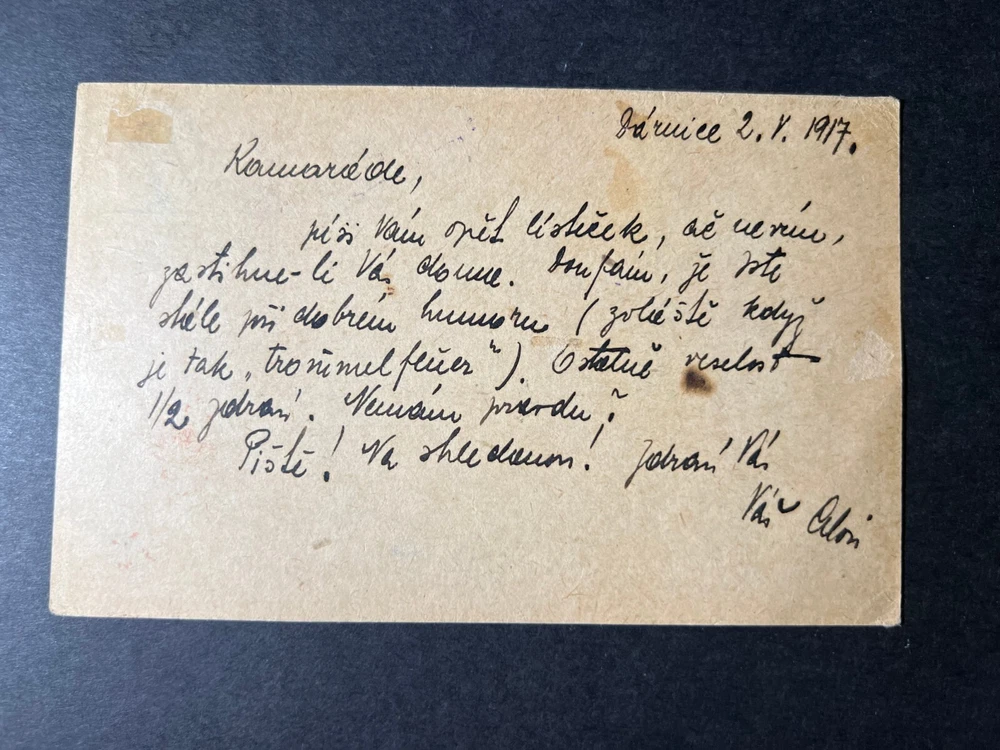 Dárnice 2. V. 1917.
Kamaráde,
píši Vám opět lísteček, ač nevím,
zastihne-li Vás doma. Doufám, že jste
stále při dobrém humoru (zvláště když
je tak „trommelfeuer"). Ostatně veselost
1/2 zdraví. Nemám pravdu?
Pište! Na shledanou! Zdraví Vás
Váš Alois